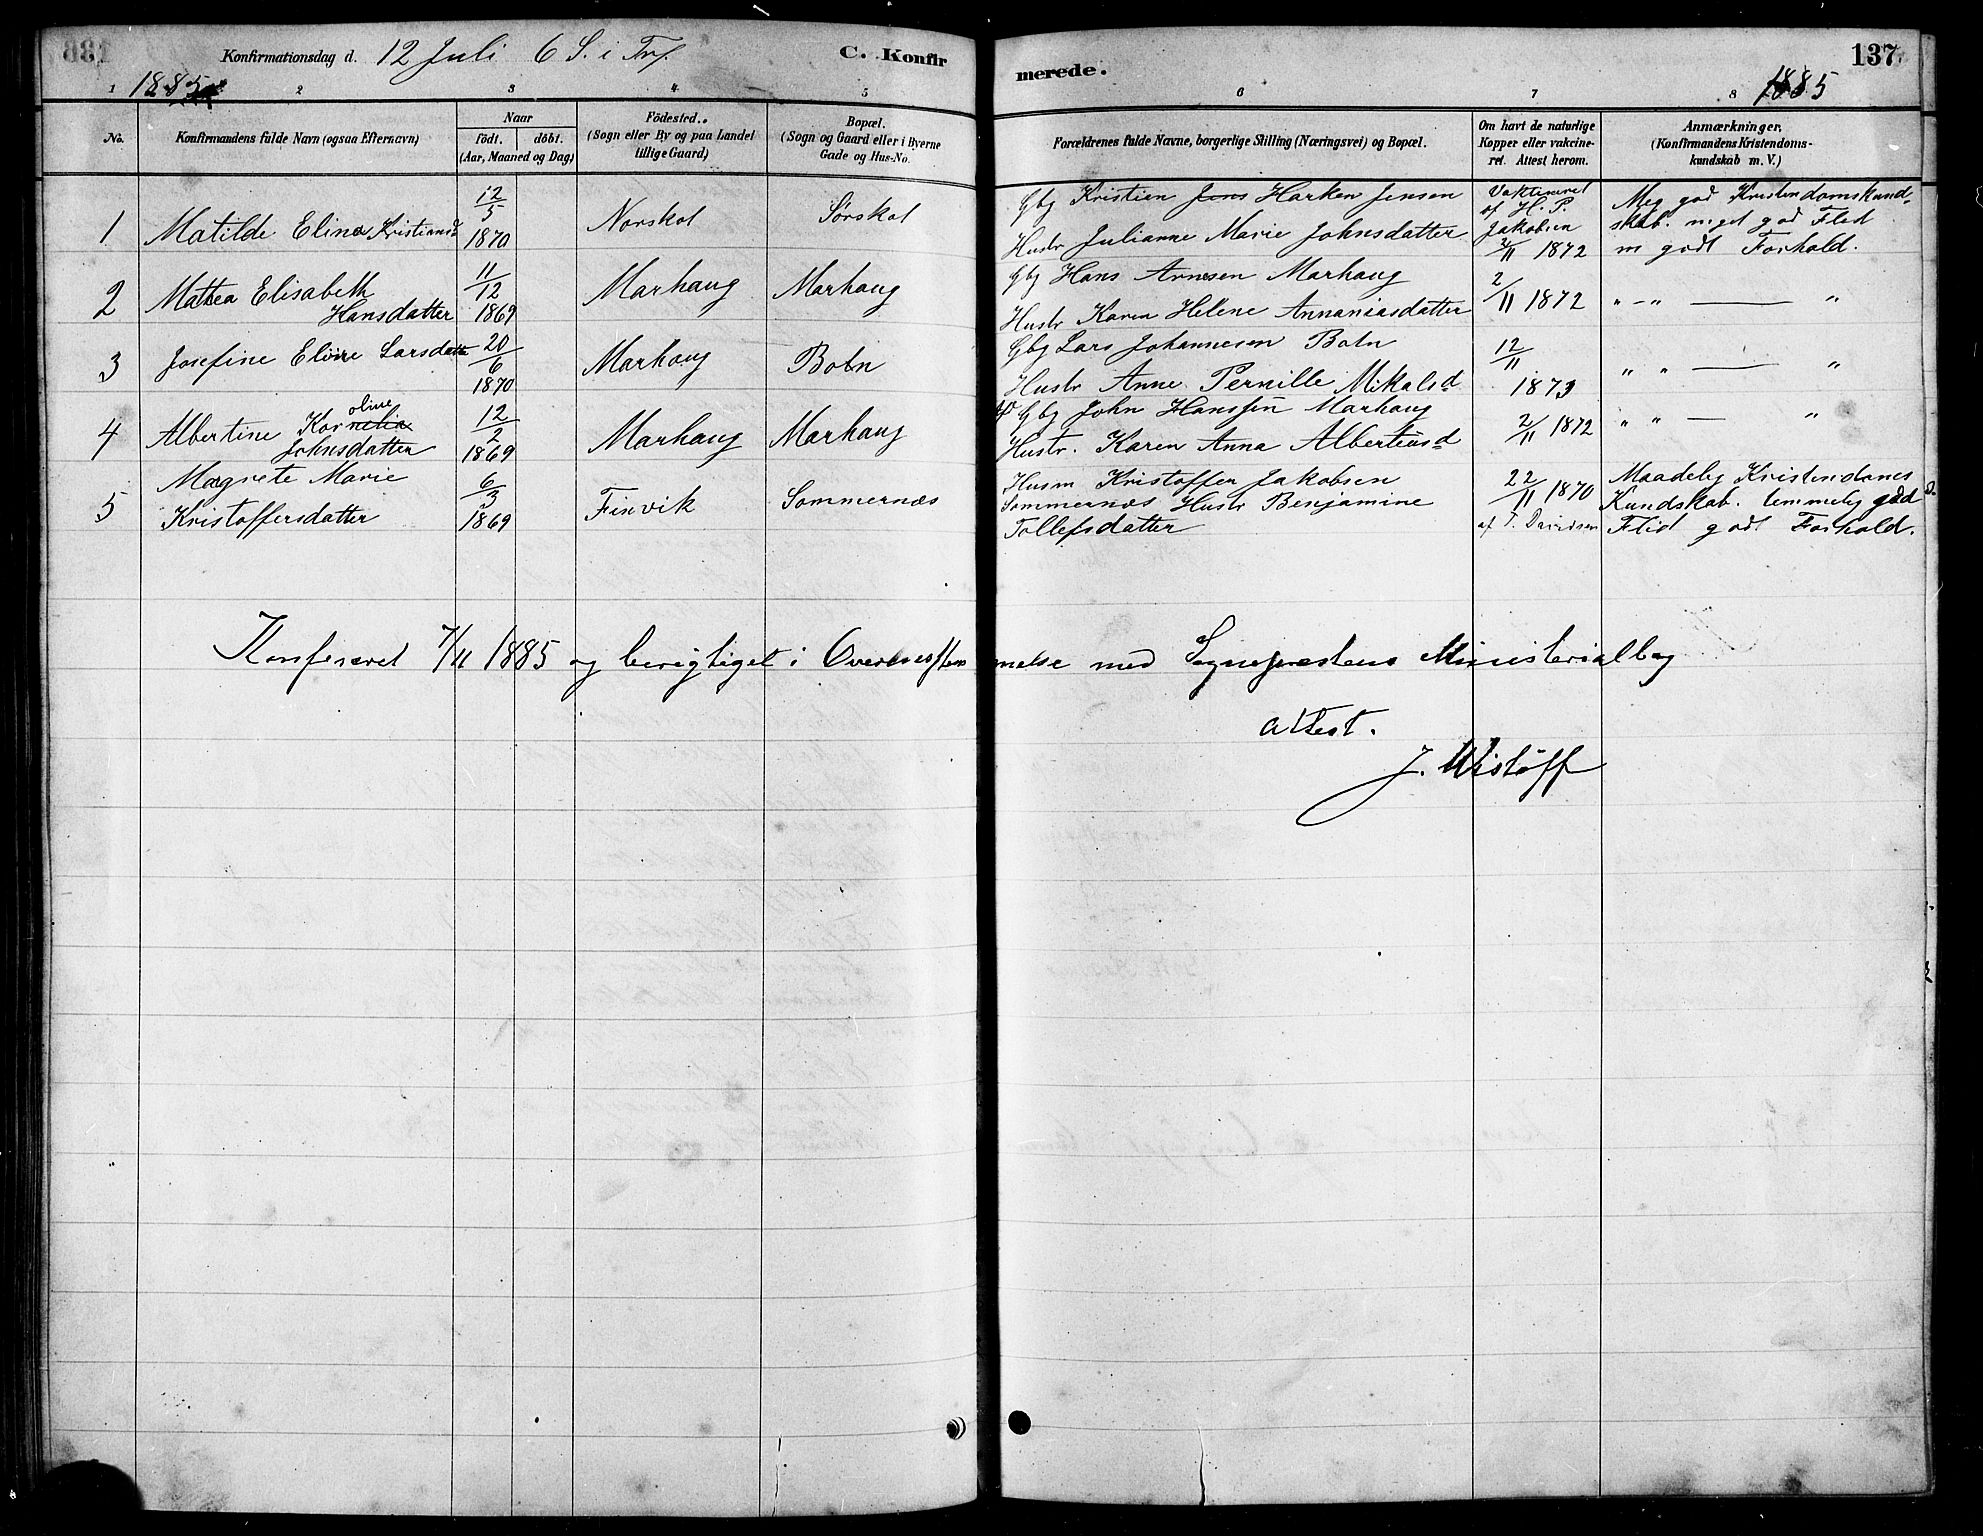 Konfirmationsdag d. 12 Juli 6 S. i Trf. C. Konfirmerede. 137
1885 1885
1 2 3 4 5 6 7 8
No. Konfirmandens fulde Navn (ogsaa Efternavn) Naar födt. döbt. (Aar, Maaned og Dag) Födested. (Sogn eller By og paa Landet tillige Gaard) Bopæl. (Sogn og Gaard eller i Byerne Gade og Hus-No. Forældrenes fulde Navne, borgerlige Stilling (Næringsvei) og Bopæl. Om havt de naturlige Kopper eller vakcineret. Attest herom. Anmærkninger. (Konfirmandens Kristendomskundskab m. V.)
1 Matilde Elina Kristiansd 12/5 1870 Norskot Sörskot Gbg Kristian Jens Harken Jensen
Hustr Julianne Marie Johnsdatter Vaktineret af H. P. Jakobsen 2/11 1872 Meg god Kristendomskundskab. meget god Flid m godt Forhold.
2 Mattea Elisabeth Hansdatter 11/12 1869 Marhaug Marhaug Gbg Hans Arnesen Marhaug
Hustr Karen Helene Annaniasdatter 2/11 1872 " - " — "
3 Josefine Elvire Larsdatter 20/6 1870 Marhaug Botn Gbg Lars Johannesen Botn
Hustr Anne Pernille Mikalsd 12/11 1873 " " — "
4 Albertine Kornelia oline Johnsdatter 12/2 1869 Marhaug Marhaug Gbg John Hanssen Marhaug
Hustr. Karen Anna Albertusd 2/11 1872 " " — "
5 Magrete Marie Kristoffersdatter 6/3 1869 Finvik Sommernæs Husm Kristoffer Jakobsen
Sommernæs Hustr Benjamine
Tollefsdatter 22/11 1870 af T. Davidsen Maadelig Kristendoms Kundskab. temmelig god Flid godt Forhold.
Konfereret 7/11 1885 og berigtiget i Overensstemmelse med Sognepræstens Ministerialbog
attest.
J. Wisløff